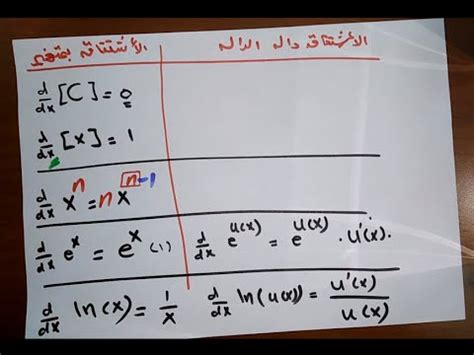 الأشتقاق بمتغير	الأشتقاق داله الداله
d/dx [C] = 0
d/dx [x] = 1
d/dx xⁿ = n xⁿ⁻¹
d/dx eˣ = eˣ (1)	d/dx e^u(x) = e^u(x) · u'(x).
d/dx ln(x) = 1/x	d/dx ln(u(x)) = u'(x)/u(x)